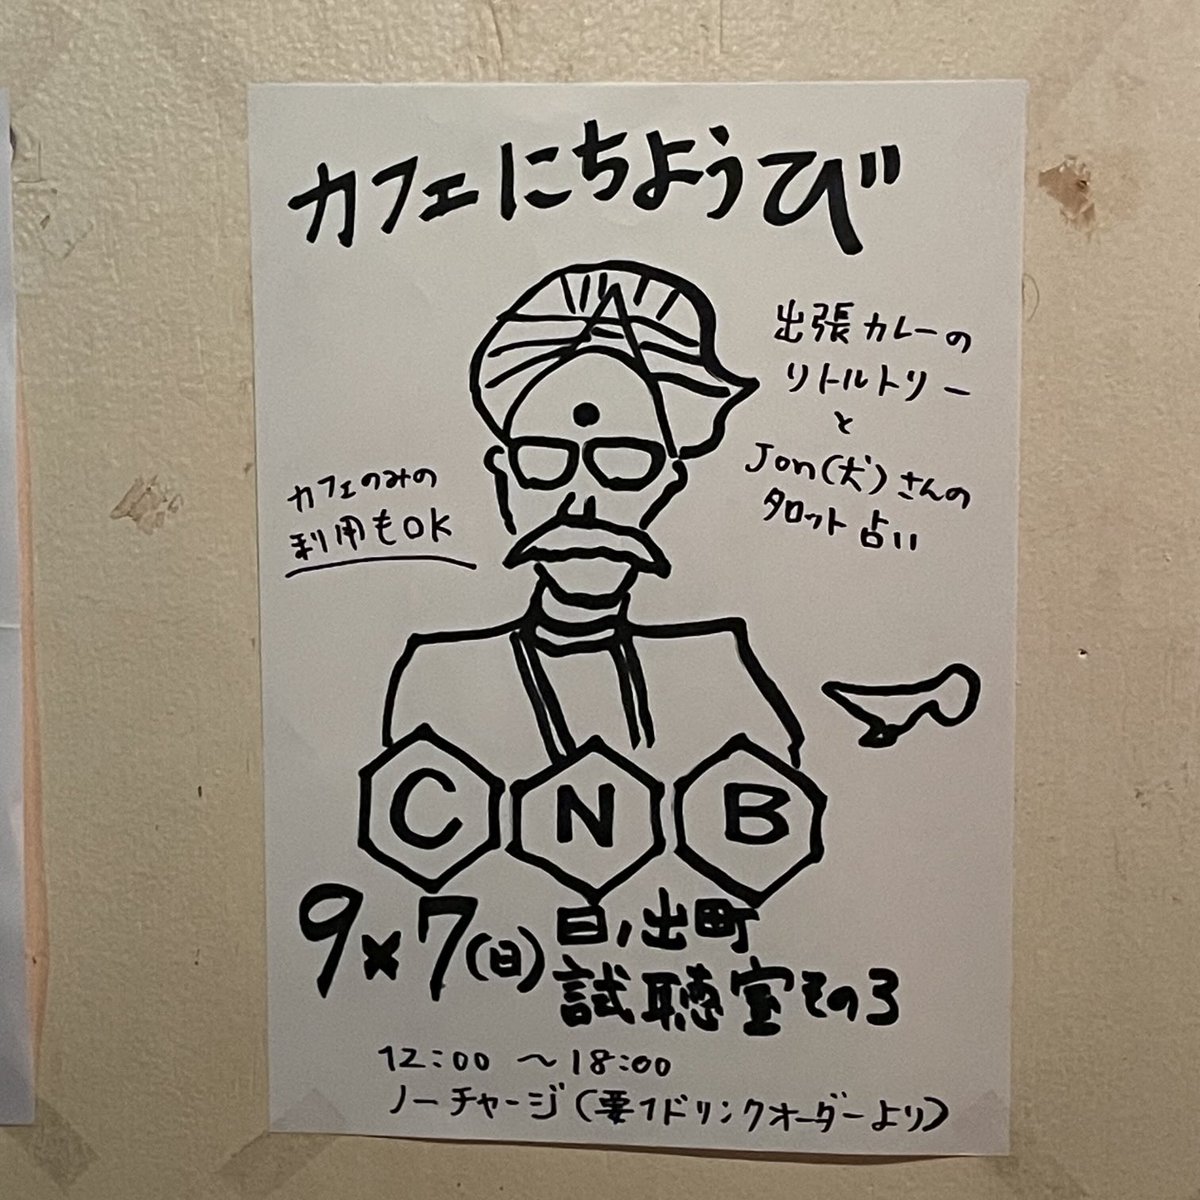 カフェにちようび
出張カレーの
リトルトリー
と
Jon(犬)さんの
タロット占い
カフェのみの
利用もOK
C N B
9×7(日)
日ノ出町
試聴室その3
12:00 〜 18:00
ノーチャージ(要1ドリンクオーダーより)